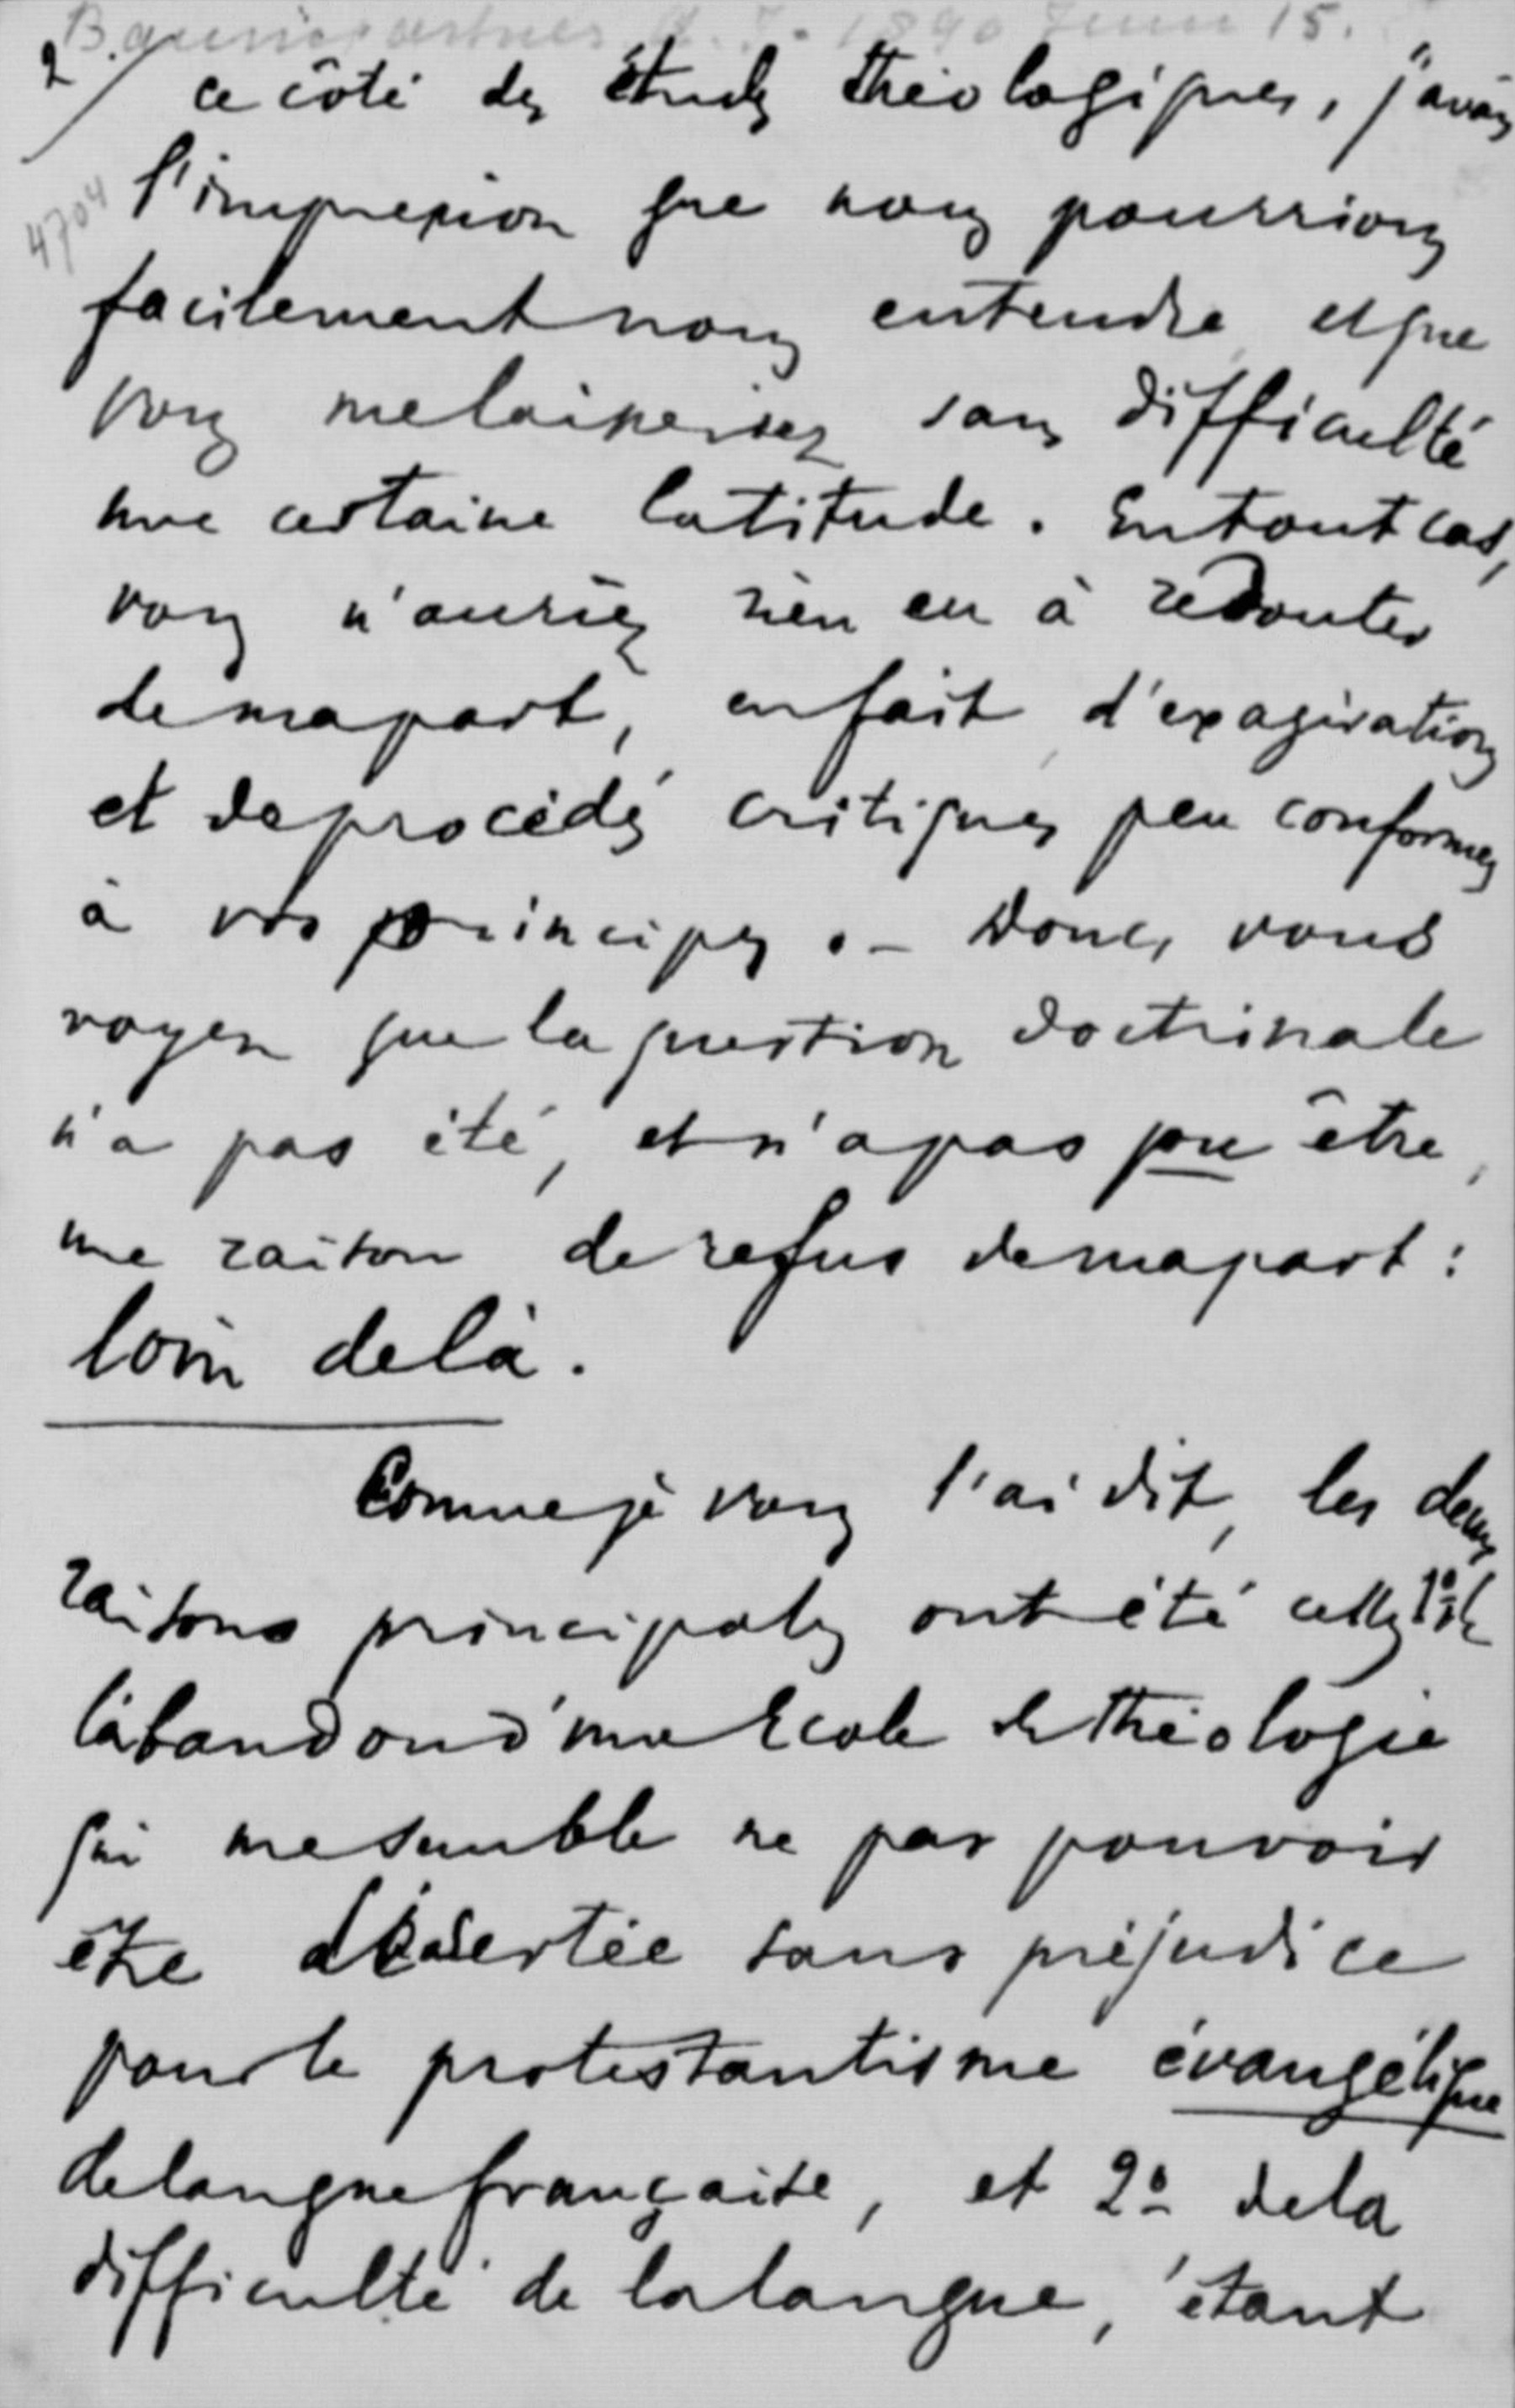 Baumgartner A. J. 1890 Juin 15.
2/ ce côté des études théologiques, j'avais
4704
l'impression que nous pourrions
facilement nous entendre et que
vous me laisseriez sans difficulté
une certaine latitude. En tout cas,
vous n'auriez rien eu à redouter
de ma part, en fait d'exagérations
et de procédés critiques peu conformes
à vos principes. – Donc, vous
voyez que la question doctrinale
n'a pas été, et n'a pas pu être,
une raison de refus de ma part :
loin de là.
Comme je vous l'ai dit, les deux
raisons principales ont été celles 1º de
l'abandon d'une Ecole de théologie
qui me semble ne pas pouvoir
être désertée sans préjudice
pour le protestantisme évangélique
de langue française, et 2º de la
difficulté de la langue, étant